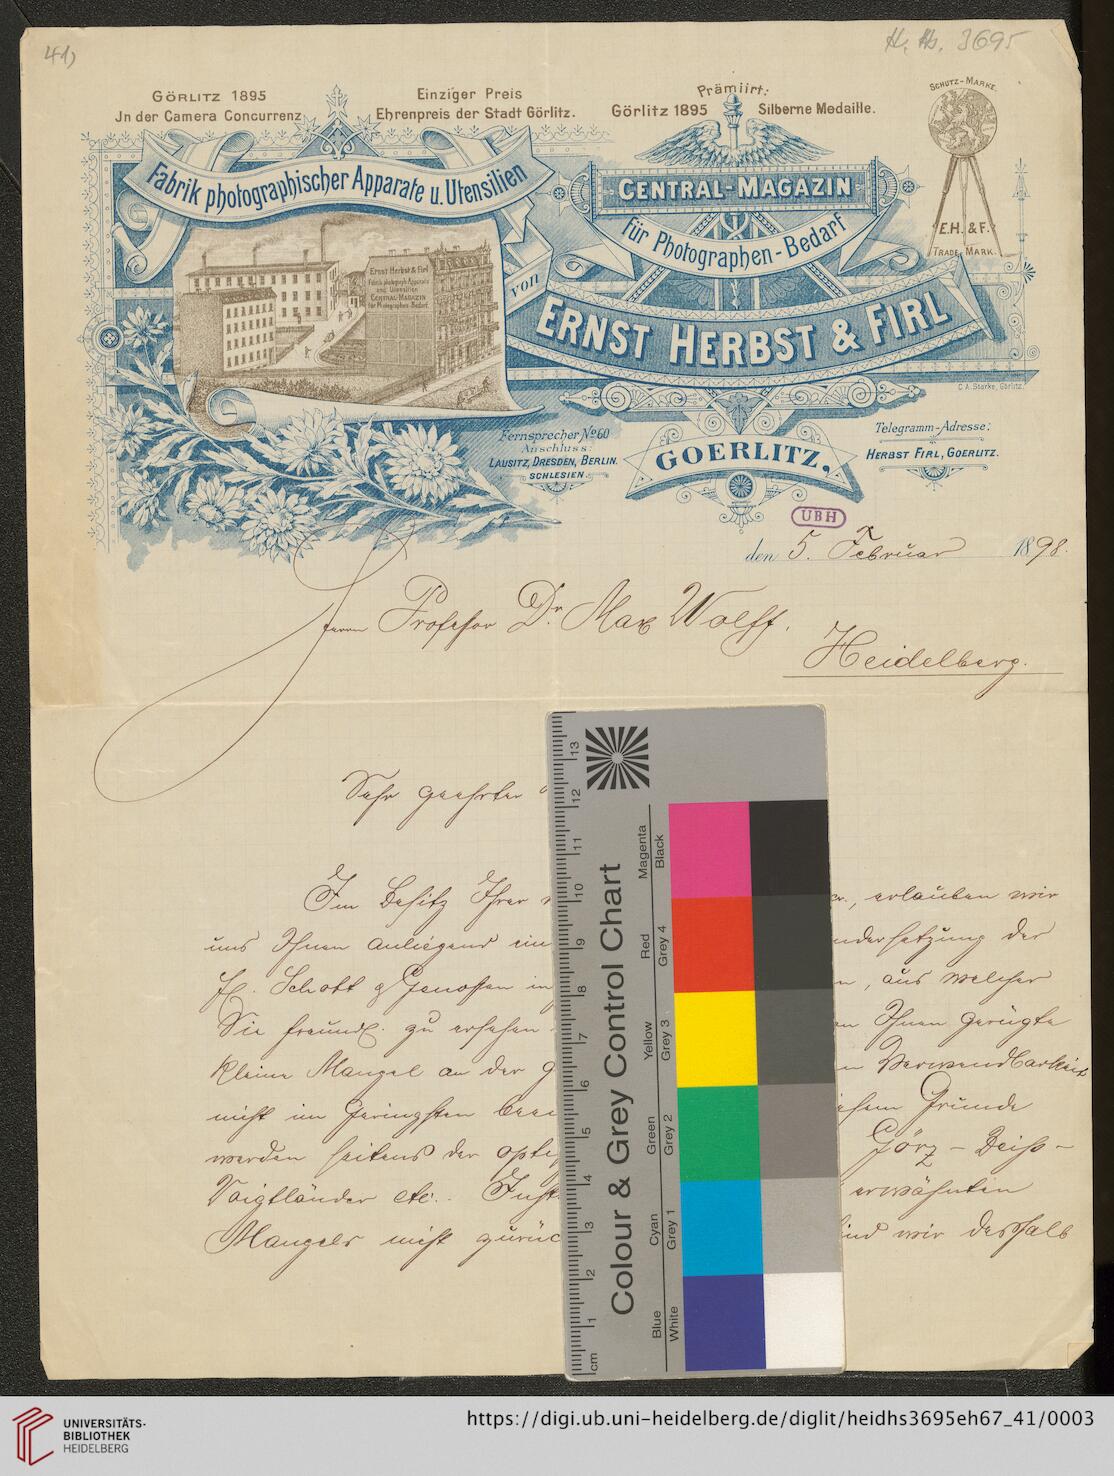 41)
H. Hs. 3695
GÖRLITZ 1895
Jn der Camera Concurrenz
Einziger Preis
Ehrenpreis der Stadt Görlitz.
Prämiirt:
Görlitz 1895 Silberne Medaille.
SCHUTZ-MARKE.
E.H. & F.
TRADE MARK.
Fabrik photographischer Apparate u. Utensilien
von
CENTRAL-MAGAZIN
für Photographen-Bedarf
ERNST HERBST & FIRL
Ernst Herbst & Firl
Fabrik photograph. Apparate
und Utensilien
CENTRAL-MAGAZIN
für Photographen-Bedarf.
C. A. Starke, Görlitz.
GOERLITZ,
Fernsprecher No 60
Anschluss:
LAUSITZ, DRESDEN, BERLIN.
SCHLESIEN.
Telegramm-Adresse:
HERBST FIRL, GOERLITZ.
UBH
den 5. Februar 1898.
Herrn Professor Dr. Max Wolff.
Heidelberg.
Sehr geehrter
Im Besitz Ihrer , erlauben wir
uns Ihnen anliegend ein ndersetzung der
H. Schott & Genossen in n, aus welcher
Sie freundl. zu ersehen en Ihnen gerügte
kleine Mangel an der G n Verwendbarkeit
nicht im Geringsten beei esem Grunde
werden seitens der opti Görz - Zeiss -
Voigtländer etc. Inst erwähnten
Mangels nicht zurüc ind wir deshalb
Colour & Grey Control Chart
Blue Cyan Green Yellow Red Magenta
White Grey 1 Grey 2 Grey 3 Grey 4 Black
cm 1 2 3 4 5 6 7 8 9 10 11 12 13
UNIVERSITÄTS-
BIBLIOTHEK
HEIDELBERG
https://digi.ub.uni-heidelberg.de/diglit/heidhs3695eh67_41/0003